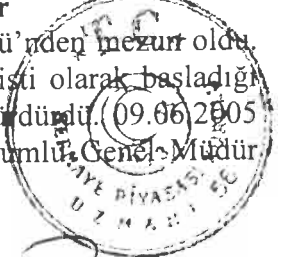 r
ü'nden mezun oldu.
isti olarak başladığı
rdürdü. 09.06.2005
umlu Genel Müdür
T.C.
PİYASASI
UZMANI